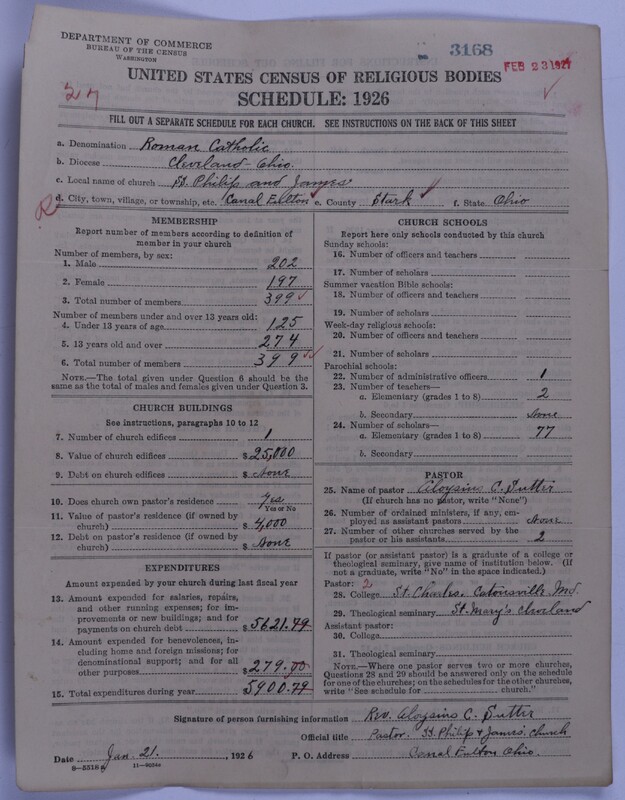 DEPARTMENT OF COMMERCE
BUREAU OF THE CENSUS
WASHINGTON
3168
FEB 23 1927
27
UNITED STATES CENSUS OF RELIGIOUS BODIES
SCHEDULE: 1926
FILL OUT A SEPARATE SCHEDULE FOR EACH CHURCH. SEE INSTRUCTIONS ON THE BACK OF THIS SHEET
a. Denomination Roman Catholic
b. Diocese Cleveland - Ohio.
c. Local name of church SS. Philip and James
R d. City, town, village, or township, etc. Canal Fulton e. County Stark f. State Ohio
MEMBERSHIP
Report number of members according to definition of
member in your church
Number of members, by sex:
1. Male 202
2. Female 197
3. Total number of members 399
Number of members under and over 13 years old:
4. Under 13 years of age 125
5. 13 years old and over 274
6. Total number of members 399
NOTE.—The total given under Question 6 should be
the same as the total of males and females given under Question 3.
CHURCH BUILDINGS
See instructions, paragraphs 10 to 12
7. Number of church edifices 1
8. Value of church edifices $ 25,000
9. Debt on church edifices $ None
10. Does church own pastor's residence Yes
Yes or No
11. Value of pastor's residence (if owned by
church) $ 4,000
12. Debt on pastor's residence (if owned by
church) $ None
EXPENDITURES
Amount expended by your church during last fiscal year
13. Amount expended for salaries, repairs,
and other running expenses; for im-
provements or new buildings; and for
payments on church debt $ 5621.49
14. Amount expended for benevolences, in-
cluding home and foreign missions; for
denominational support; and for all
other purposes $ 279.00
15. Total expenditures during year 5900.49
CHURCH SCHOOLS
Report here only schools conducted by this church
Sunday schools:
16. Number of officers and teachers
17. Number of scholars
Summer vacation Bible schools:
18. Number of officers and teachers
19. Number of scholars
Week-day religious schools:
20. Number of officers and teachers
21. Number of scholars
Parochial schools:
22. Number of administrative officers 1
23. Number of teachers—
a. Elementary (grades 1 to 8) 2
b. Secondary None
24. Number of scholars—
a. Elementary (grades 1 to 8) 77
b. Secondary
PASTOR
25. Name of pastor Aloysius C. Sutter
(If church has no pastor, write "None")
26. Number of ordained ministers, if any, em-
ployed as assistant pastors None
27. Number of other churches served by the
pastor or his assistants 2
If pastor (or assistant pastor) is a graduate of a college or
theological seminary, give name of institution below. (If
not a graduate, write "No" in the space indicated.)
Pastor: 2
28. College St. Charles, Catonsville, Md.
29. Theological seminary St. Mary's Cleveland
Assistant pastor:
30. College
31. Theological seminary
NOTE.—Where one pastor serves two or more churches,
Questions 28 and 29 should be answered only on the schedule
for one of the churches; on the schedules for the other churches,
write "See schedule for church."
Signature of person furnishing information Rev. Aloysius C. Sutter
Official title Pastor. SS. Philip & James. church
Date Jan. 21. , 1926 P. O. Address Canal Fulton Ohio.